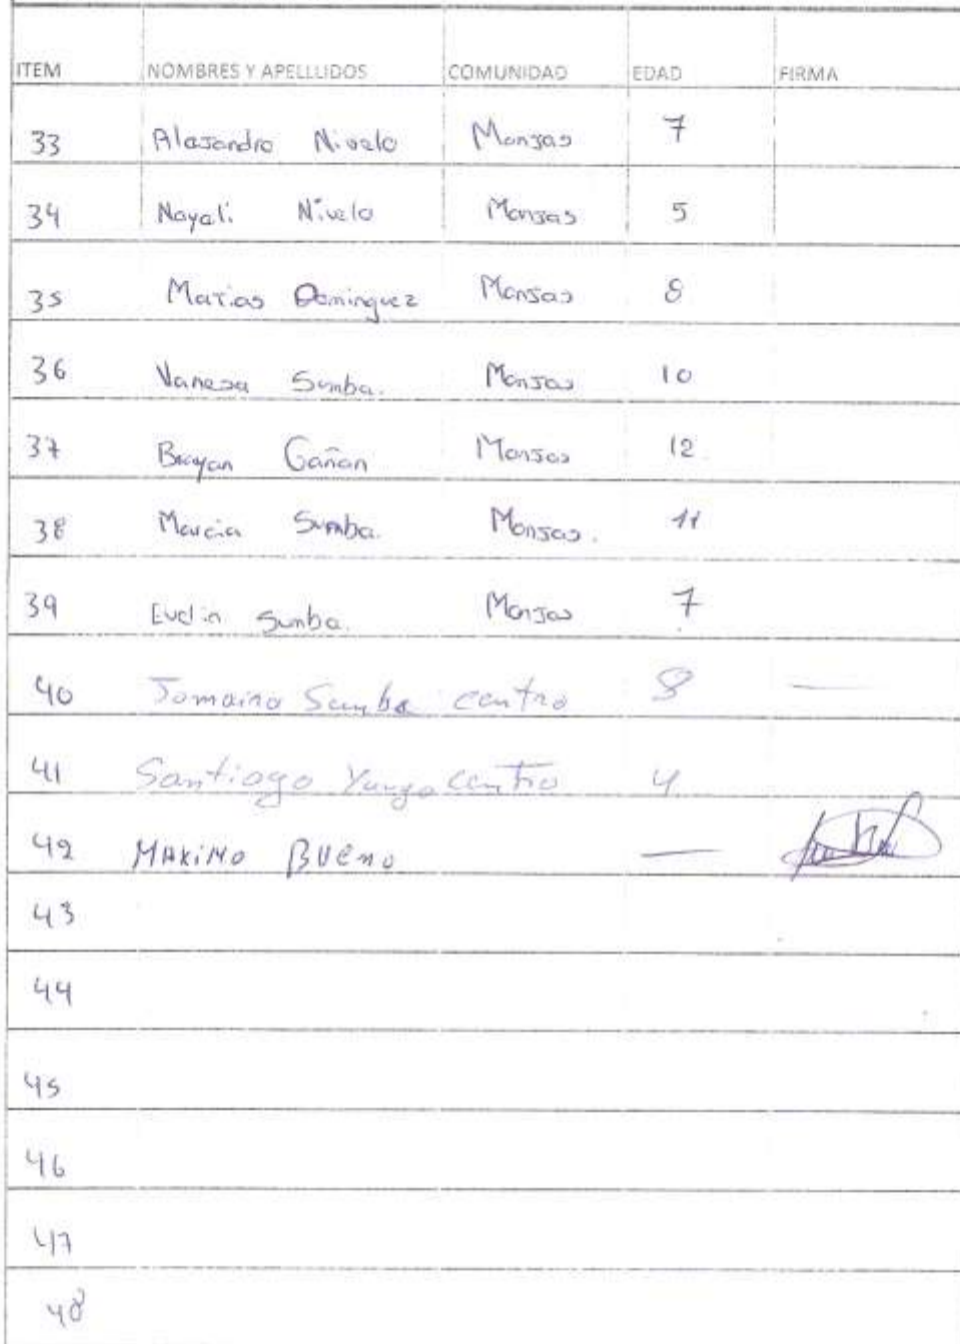 ITEM NOMBRES Y APELLLIDOS COMUNIDAD EDAD FIRMA
33 Alajandro Nivelo Monjas 7
34 Nayali Nivelo Monjas 5
35 Matias Dominguez Monjas 8
36 Vanesa Sumba. Monjas 10
37 Brayan Gañan Monjas 12
38 Marcia Sumba. Monjas. 11
39 Evelin Sumba. Monjas 7
40 Jomaira Sumba centro 8 —
41 Santiago Yunga centro 4
42 MAXIMO BUENO —
43
44
45
46
47
48